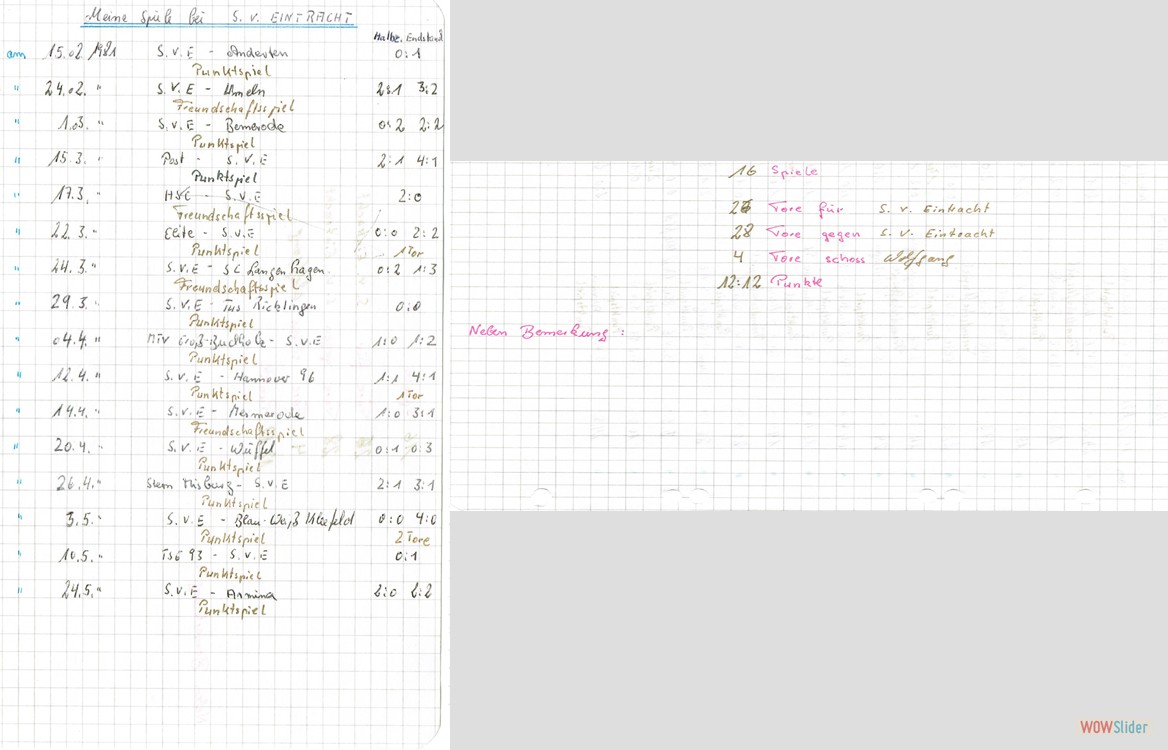 Meine Spiele bei S. V. EINTRACHT
Halbz. Endstand
am 15.02 1981 S.V.E - Anderten 0:1
Punktspiel
" 24.02. " S.V.E - Ameln 2:1 3:2
Freundschaftsspiel
" 1.03. " S.V.E - Bemerode 0:2 2:2
Punktspiel
" 15.3. " Post - S.V.E 2:1 4:1
Punktspiel
" 17.3. " HSC - S.V.E 2:0
Freundschaftsspiel
" 22.3. " Elite - S.V.E 0:0 2:2
Punktspiel 1 Tor
" 24.3. " S.V.E - SC Langenhagen. 0:2 1:3
Freundschaftsspiel
" 29.3. " S.V.E - Tus Ricklingen 0:0
Punktspiel
" 04.4. " MTV Groß-Buchholz - S.V.E 1:0 1:2
Punktspiel
" 12.4. " S.V.E - Hannover 96 1:1 4:1
Punktspiel 1 Tor
" 14.4. " S.V.E - 1:0 3:1
Freundschaftsspiel
" 20.4. " S.V.E - Wülfel 0:1 0:3
Punktspiel
" 26.4. " Stern Misburg - S.V.E 2:1 3:1
Punktspiel
" 3.5. " S.V.E - Blau-Weiß Kleefeld 0:0 4:0
Punktspiel 2 Tore
" 10.5. " TSG 93 - S.V.E 0:1
Punktspiel
" 24.5. " S.V.E - Armina 2:0 2:2
Punktspiel
16 Spiele
Tore für S. V. Eintracht
28 Tore gegen S. V. Eintracht
4 Tore schoss Wolfgang
12:12 Punkte
Neben Bemerkung :
WOWSlider